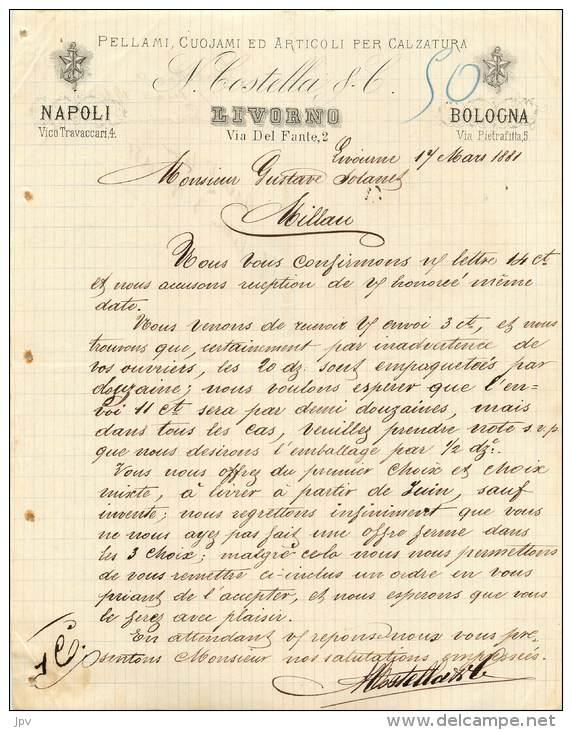 PELLAMI, CUOJAMI ED ARTICOLI PER CALZATURA
N. Costella & C.
50
NAPOLI
Vico Travaccari, 4.
LIVORNO
Via Del Fante, 2
BOLOGNA
Via Pietrafitta, 5
Livourne 17 Mars 1881
Monsieur Gustave Solanet
Millau
Nous Vous confirmons n/ lettre 14 ct
et nous accusons reception de V/ honoreé même
date.
Nous venons de recevoir V/ envoi 3 ct, et nous
trouvons que, certainement par inadvertence de
vos ouvriers, les 20 dz. sont empaquetées par
douzaine; nous voulons espérer que l'en-
voi 11 ct sera par demi douzaines, mais
dans tous les cas, veuillez prendre note s.v.p.
que nous desirons l'emballage par 1/2 dz.
Vous nous offrez du premier choix et choix
mixte, à livrer à partir de Juin, sauf
invente; nous regrettons infiniment que vous
ne nous ayez pas fait une offre ferme dans
les 3 choix; malgré cela nous nous permettons
de vous remettre ci-inclus un ordre en vous
priant de l'accepter, et nous esperons que vous
le ferez avec plaisir.
En attendant V/ reponse nous vous pre-
sentons Monsieur nos salutations empressées.
1 C.
N Costella & C
JPV
delcampe.net